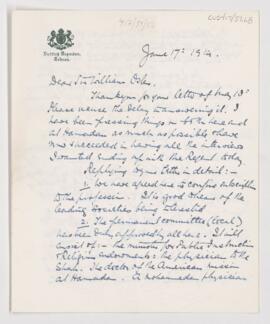 417/55/56
CUS417/55/68
British Legation,
Tehran.
June 17th 1914.
Dear Sir William Osler,
Thank you for your letter of May 13th
Please excuse the delay in answering it. I
have been pressing things on both here and
at Hamadan as much as possible & have
now succeeded in having all the interviews
I wanted ending up with the Regent today.
Replying to your letter in detail:-
1. We have agreed here to confine subscription
to the profession. It is good of the
leading societies being interested.
2. The permanent committee (local)
has been duly approved by all here. It will
consist of:- the minister for Public Instruction
& Religious endowments: the physician to the
Shah. The doctor of the American mission
at Hamadan. A mohamedan physician